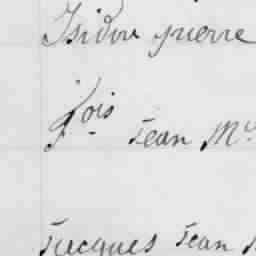 Isidor pierre
fois Jean M
Jacques Jean